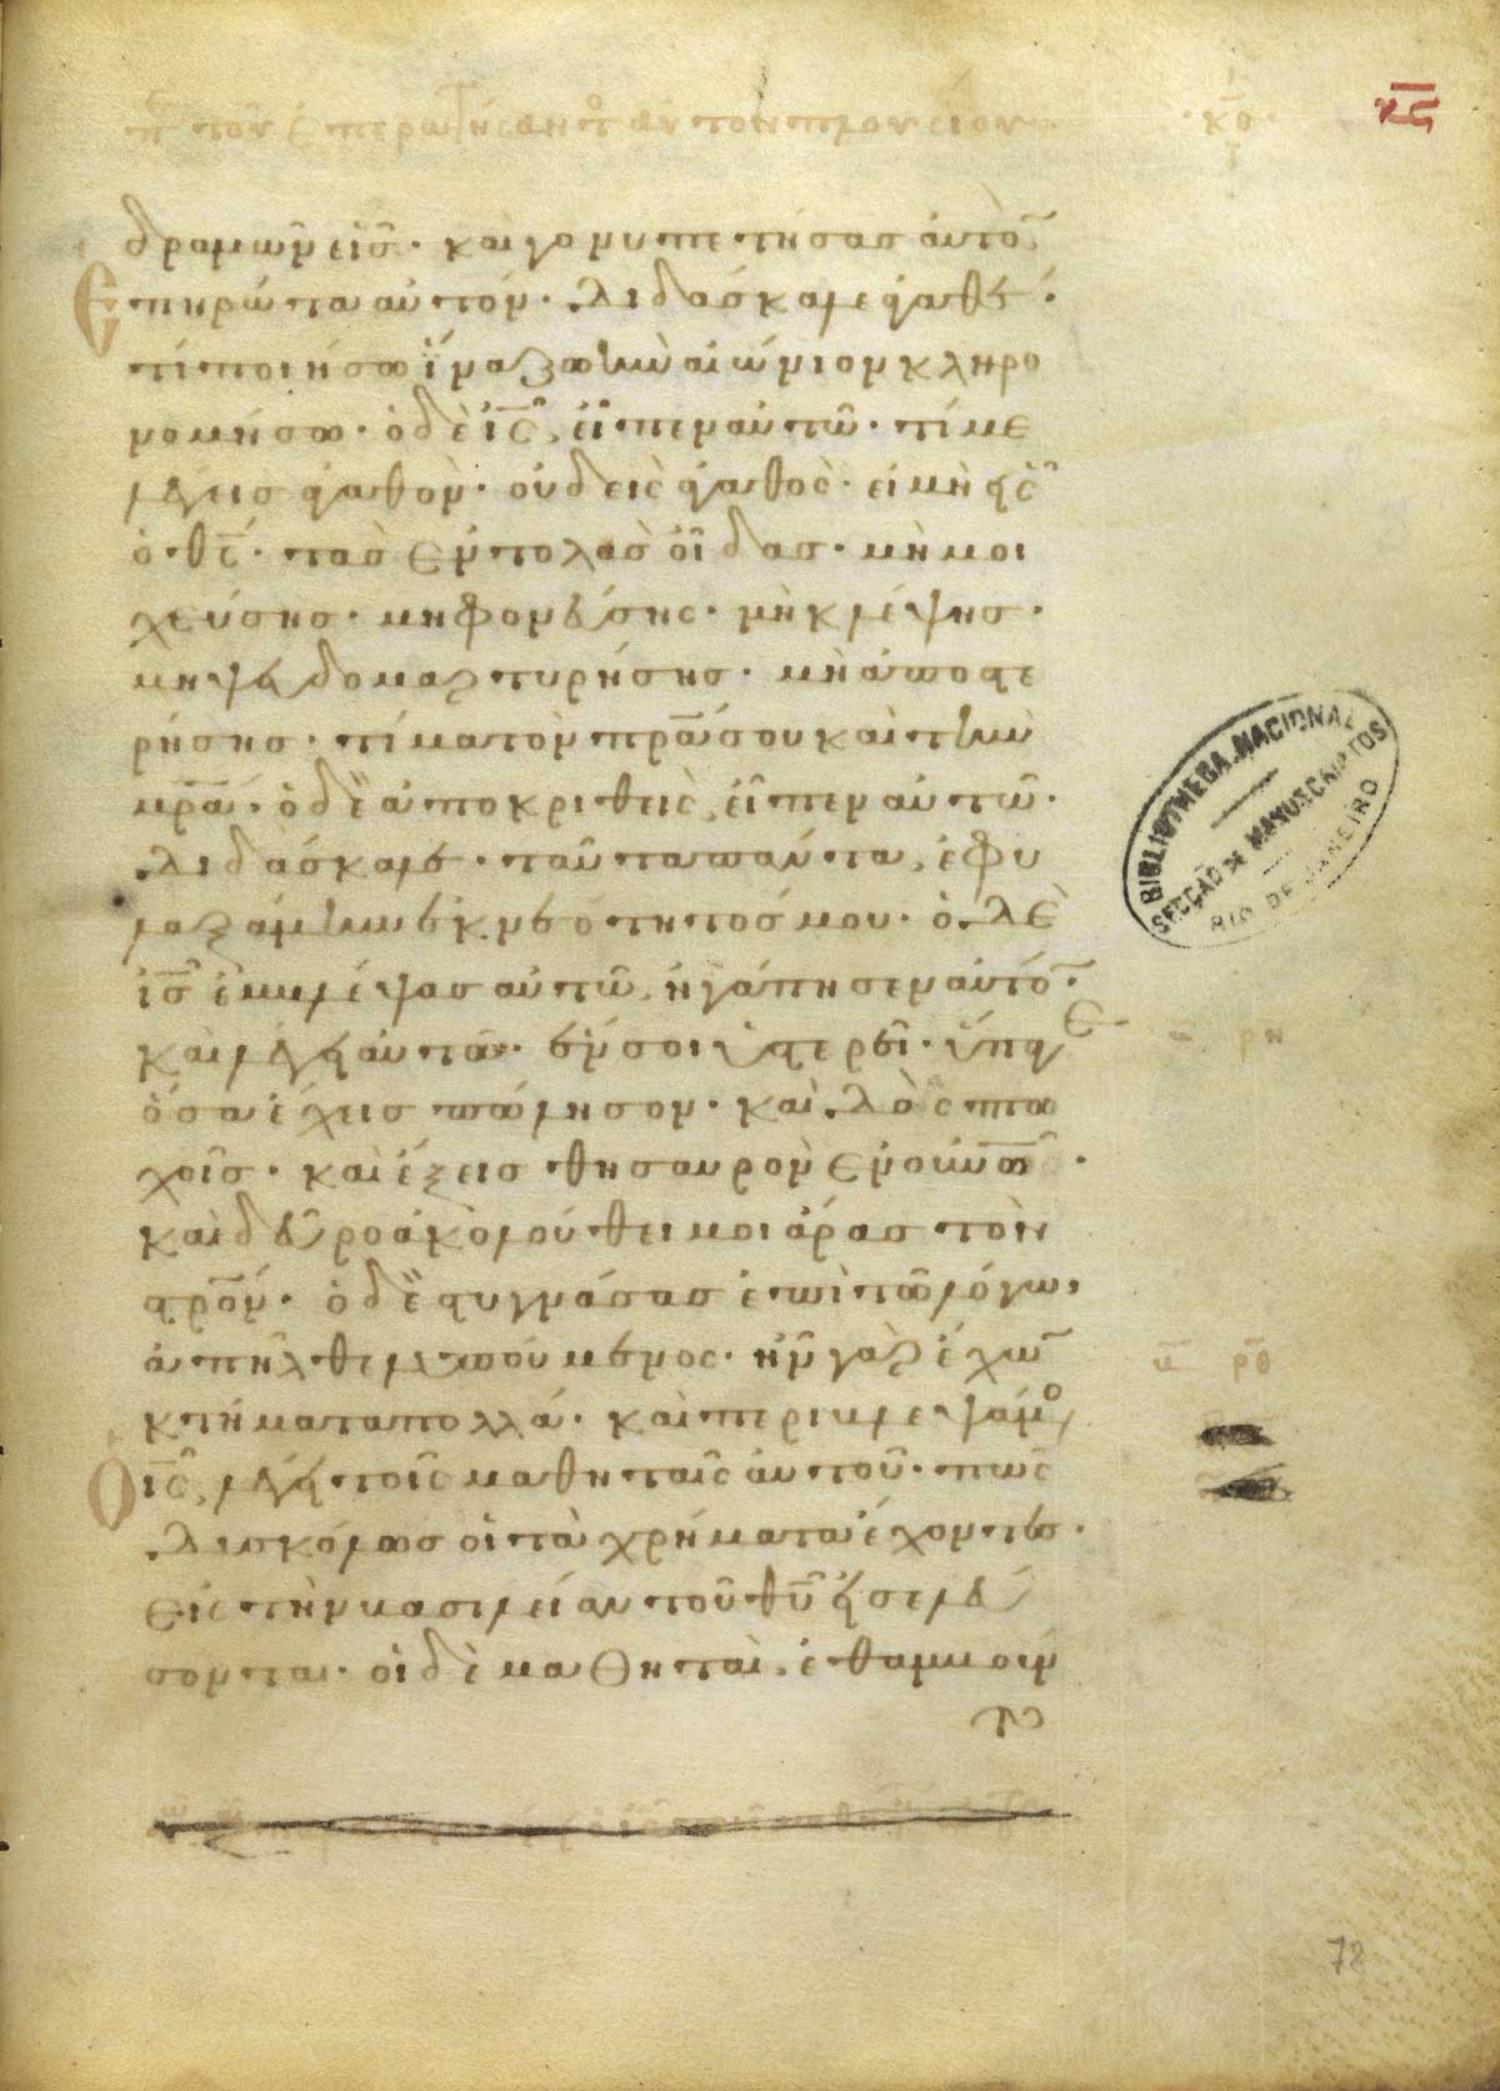 π του ἐπερωτήσαντ αὐτὸν πλουσίου
κθ
δραμὼν εἷς. καὶ γονυπετήσας αὐτὸ̅
ἐπηρώτα αὐτόν. διδάσκαλε ἀγαθέ.
τί ποιήσω ἵνα ζωὴν αἰώνιον κληρο
νομήσω. ὁ δὲ ι̅ς̅, εἶπεν αὐτῶ. τί με
λέγεις ἀγαθόν. οὐδεὶς ἀγαθὸς. εἰ μὴ εἷς
ὁ θ̅ς̅. τὰς ἐντολὰς οἶδας. μὴ μοι
χεύσης. μη φονεύσης. μὴ κλέψης.
μη ψευδομαρτυρήσης. μὴ ἀποστε
ρήσης. τίμα τὸν π̅ρ̅α̅ σου καὶ τὴν
μ̅ρ̅α̅. ὁ δὲ ἀποκριθεὶς, εἶπεν αὐτῶ.
διδάσκαλε. ταῦτα πάντα, ἐφυ
λαξάμην ἐκ νεότητός μου. ὁ δὲ
ι̅ς̅ ἐμβλέψας αὐτῶ, ἠγάπησεν αὐτό̅.
καὶ λέγει αὐτῶ. ἕν σοι ὑστερεῖ. ὕπαγε
ὅσα ἔχεις πώλησον. καὶ δὸς πτω
χοῖς. καὶ ἕξεις θησαυρὸν ἐν ου̅ν̅ω̅.
καὶ δεῦρο ἀκολούθει μοι ἄρας τὸν
στ̅ρ̅ο̅ν. ὁ δὲ στυγνάσας ἐπὶ τῶ λόγω,
ἀπῆλθε λυπούμενος. ἦν γὰρ ἔχω̅
κτήματα πολλά. καὶ περιβλεψάμο
ὁ ι̅ς̅, λέγει τοῖς μαθηταῖς αὐτοῦ. πῶς
δυσκόλως οἱ τὰ χρήματα ἔχοντες.
εἰς τὴν βασιλείαν τοῦ θ̅υ̅ εἰσελεύ
σονται. οἱ δὲ μαθηταὶ, ἐθαμβοῦν
το
ρη
ρθ
BIBLIOTHEBA NACIONAL
SECÇÃO DE MANUSCRIPTOS
RIO DE JANEIRO
78